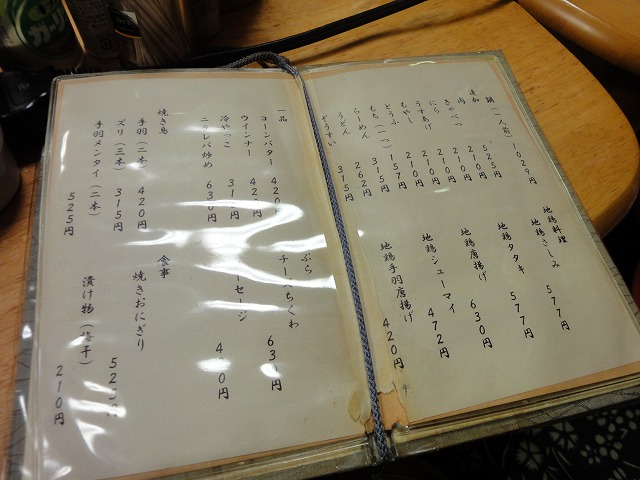 鍋(一人前) 1029円
追加
肉 525円
きゃべつ 210円
にら 210円
うすあげ 210円
もやし 210円
とうふ 157円
もち(一ヶ) 315円
らーめん 262円
うどん 315円
ぞうすい
地鶏料理
地鶏さしみ 577円
地鶏タタキ 577円
地鶏唐揚げ 630円
地鶏シューマイ 472円
地鶏手羽唐揚げ 420円
一品
コーンバター 420
ウインナー 420円
冷やっこ 円
ニラレバ炒め 630円
ぷら
チーズちくわ 630円
セージ 4 0円
焼き鳥
手羽(二本) 420円
ズリ(三本) 315円
手羽メンタイ(二本) 525円
食事
焼きおにぎり 525円
漬け物 210円